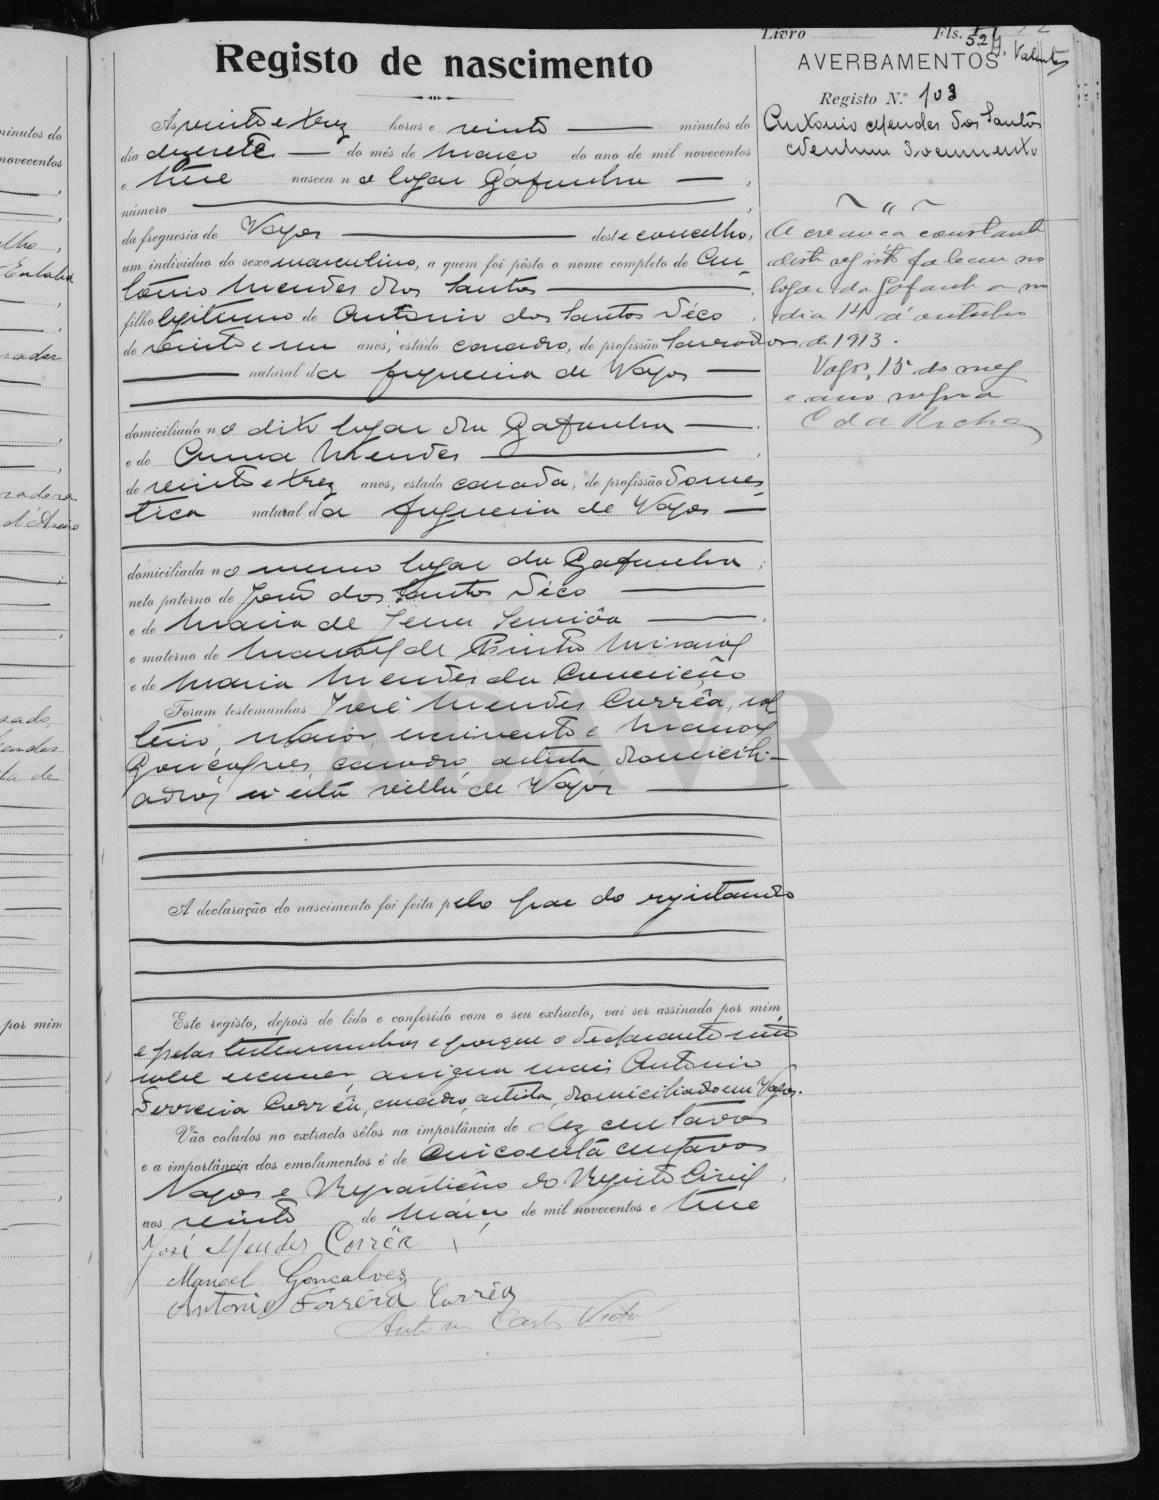 Livro Fls. 52
Registo de nascimento
AVERBAMENTOS
Registo N.º 103
Antonio Mendes dos Santos
Nenhum documento
A creança constante
deste registo faleceu no
logar da Gafanha no
dia 14 d'outubro
de 1913.
Vagos, 15 do mez
e ano supra
C da Rocha
Ás vinte e trez horas e vinte minutos do
dia dezesete do mês de Março do ano de mil novecentos
e treze nasceu no logar Gafanha
número
da freguesia de Vagos deste concelho,
um indivíduo do sexo masculino, a quem foi pôsto o nome completo de An-
tonio Mendes dos Santos
filho legitimo de Antonio dos Santos Véco
de vinte e um anos, estado casado, de profissão lavrador
natural da freguesia de Vagos
domiciliado no dito logar da Gafanha
e de Anna Mendes
de vinte e trez anos, estado casada, de profissão domes-
tica natural da freguesia de Vagos
domiciliada no mesmo logar da Gafanha;
neto paterno de João dos Santos Véco
e de Maria de Jesus
e materno de Manoel de
e de Maria Mendes da Conceição
Foram testemunhas José Mendes Corrêa, sol-
teiro, maior, e Manoel
Gonçalves, casado, artista domicili-
ados n'esta villa de Vagos
ADAVR
A declaração do nascimento foi feita pelo pae do registando
Este registo, depois de lido e conferido com o seu extracto, vai ser assinado por mim,
e pelas testemunhas e porque o declarante não
sabe escrever, assigna mais Antonio
Ferreira Corrêa, casado, artista, domiciliado em Vagos.
Vão colados no extracto sêlos na importância de dez centavos
e a importância dos emolumentos é de cincoenta centavos
Vagos e Repartição do Registo Civil,
aos vinte de Março de mil novecentos e treze
José Mendes Corrêa
Manoel Gonçalves
Antonio Ferreira Corrêa